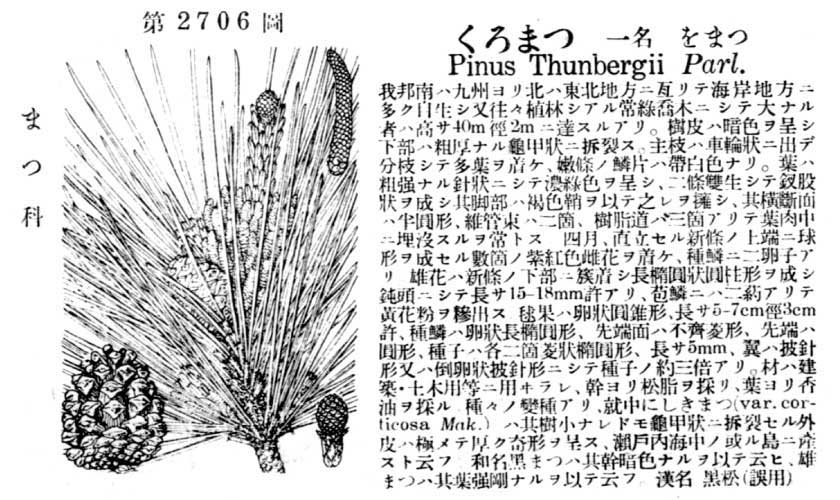 第2706圖
まつ科
くろまつ 一名 をまつ
Pinus Thunbergii Parl.
我邦南ハ九州ヨリ北ハ東北地方ニ亙リテ海岸地方ニ
多ク自生シ又往々植林シアル常綠喬木ニシテ大ナル
者ハ高サ40m徑2mニ達スルアリ。樹皮ハ暗色ヲ呈シ
下部ハ粗厚ナル龜甲狀ニ拆裂ス。主枝ハ車輪狀ニ出デ
分枝シテ多葉ヲ着ケ、嫩條ノ鱗片ハ帶白色ナリ。葉ハ
粗强ナル針狀ニシテ濃綠色ヲ呈シ、二條雙生シテ釵股
狀ヲ成シ其脚部ハ褐色鞘ヲ以テ之レヲ擁シ、其橫斷面
ハ半圓形、維管束ハ二箇、樹脂道ハ三箇アリテ葉肉中
ニ埋沒スルヲ常トス 四月、直立セル新條ノ上端ニ球
形ヲ成セル數箇ノ紫紅色雌花ヲ着ケ、種鱗ニ二卵子ア
リ 雄花ハ新條ノ下部ニ簇着シ長橢圓狀圓柱形ヲ成シ
鈍頭ニシテ長サ15-18mm許アリ、苞鱗ニハ二葯アリテ
黃花粉ヲ糝出ス 毬果ハ卵狀圓錐形、長サ5-7cm徑3cm
許、種鱗ハ卵狀長橢圓形、先端面ハ不齊菱形、先端ハ
圓形、種子ハ各二箇菱狀橢圓形、長サ5mm、翼ハ披針
形又ハ倒卵狀披針形ニシテ種子ノ約三倍アリ。材ハ建
築・土木用等ニ用ヰラレ、幹ヨリ松脂ヲ採リ、葉ヨリ香
油ヲ採ル 種々ノ變種アリ、就中にしきまつ(var. cor-
ticosa Mak.) ハ其樹小ナレドモ龜甲狀ニ拆裂セル外
皮ハ極メテ厚ク奇形ヲ呈ス、瀨戶內海中ノ或ル島ニ產
スト云フ 和名黑まつハ其幹暗色ナルヲ以テ云ヒ、雄
まつハ其葉强剛ナルヲ以テ云フ 漢名 黑松(誤用)